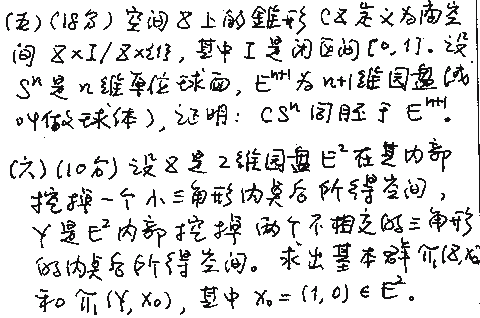 (五)(18分) 空间 X 上的锥形 CX 定义为商空
间 X×I/X×{1}, 其中 I 是闭区间 [0,1]. 设
Sⁿ 是 n 维单位球面, Eⁿ⁺¹ 为 n+1 维园盘(或
叫做球体), 证明: CSⁿ 同胚于 Eⁿ⁺¹.
(六)(10分) 设 X 是 2 维园盘 E² 在其内部
挖掉一个小三角形内点后所得空间,
Y 是 E² 内部挖掉两个不相交的三角形
的内点后所得空间。求出基本群 π(X,x₀)
和 π(Y,x₀), 其中 x₀=(1,0)∈E².